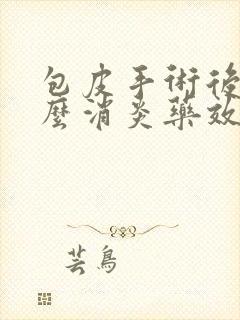 包皮手術後
麼消炎藥效
芸鳥